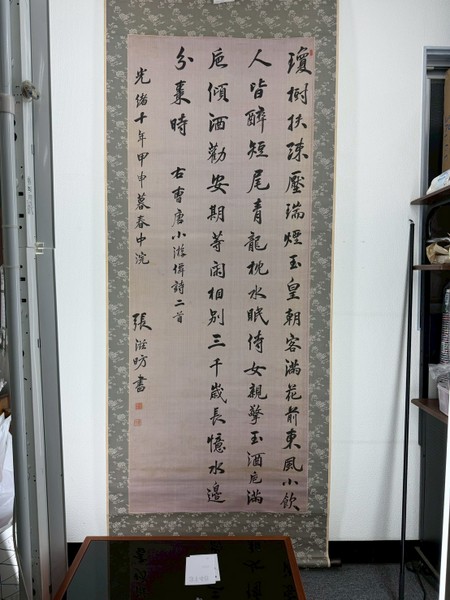 瓊樹扶疎壓瑞煙玉皇朝客滿花前東風小飲
人皆醉短尾青龍枕水眠侍女親擎玉酒卮滿
卮傾酒勸安期等閑相別三千歲長憶水邊
分棗時 右曹唐小游僊詩二首
光緒十年甲申暮春中浣 張滋昉書